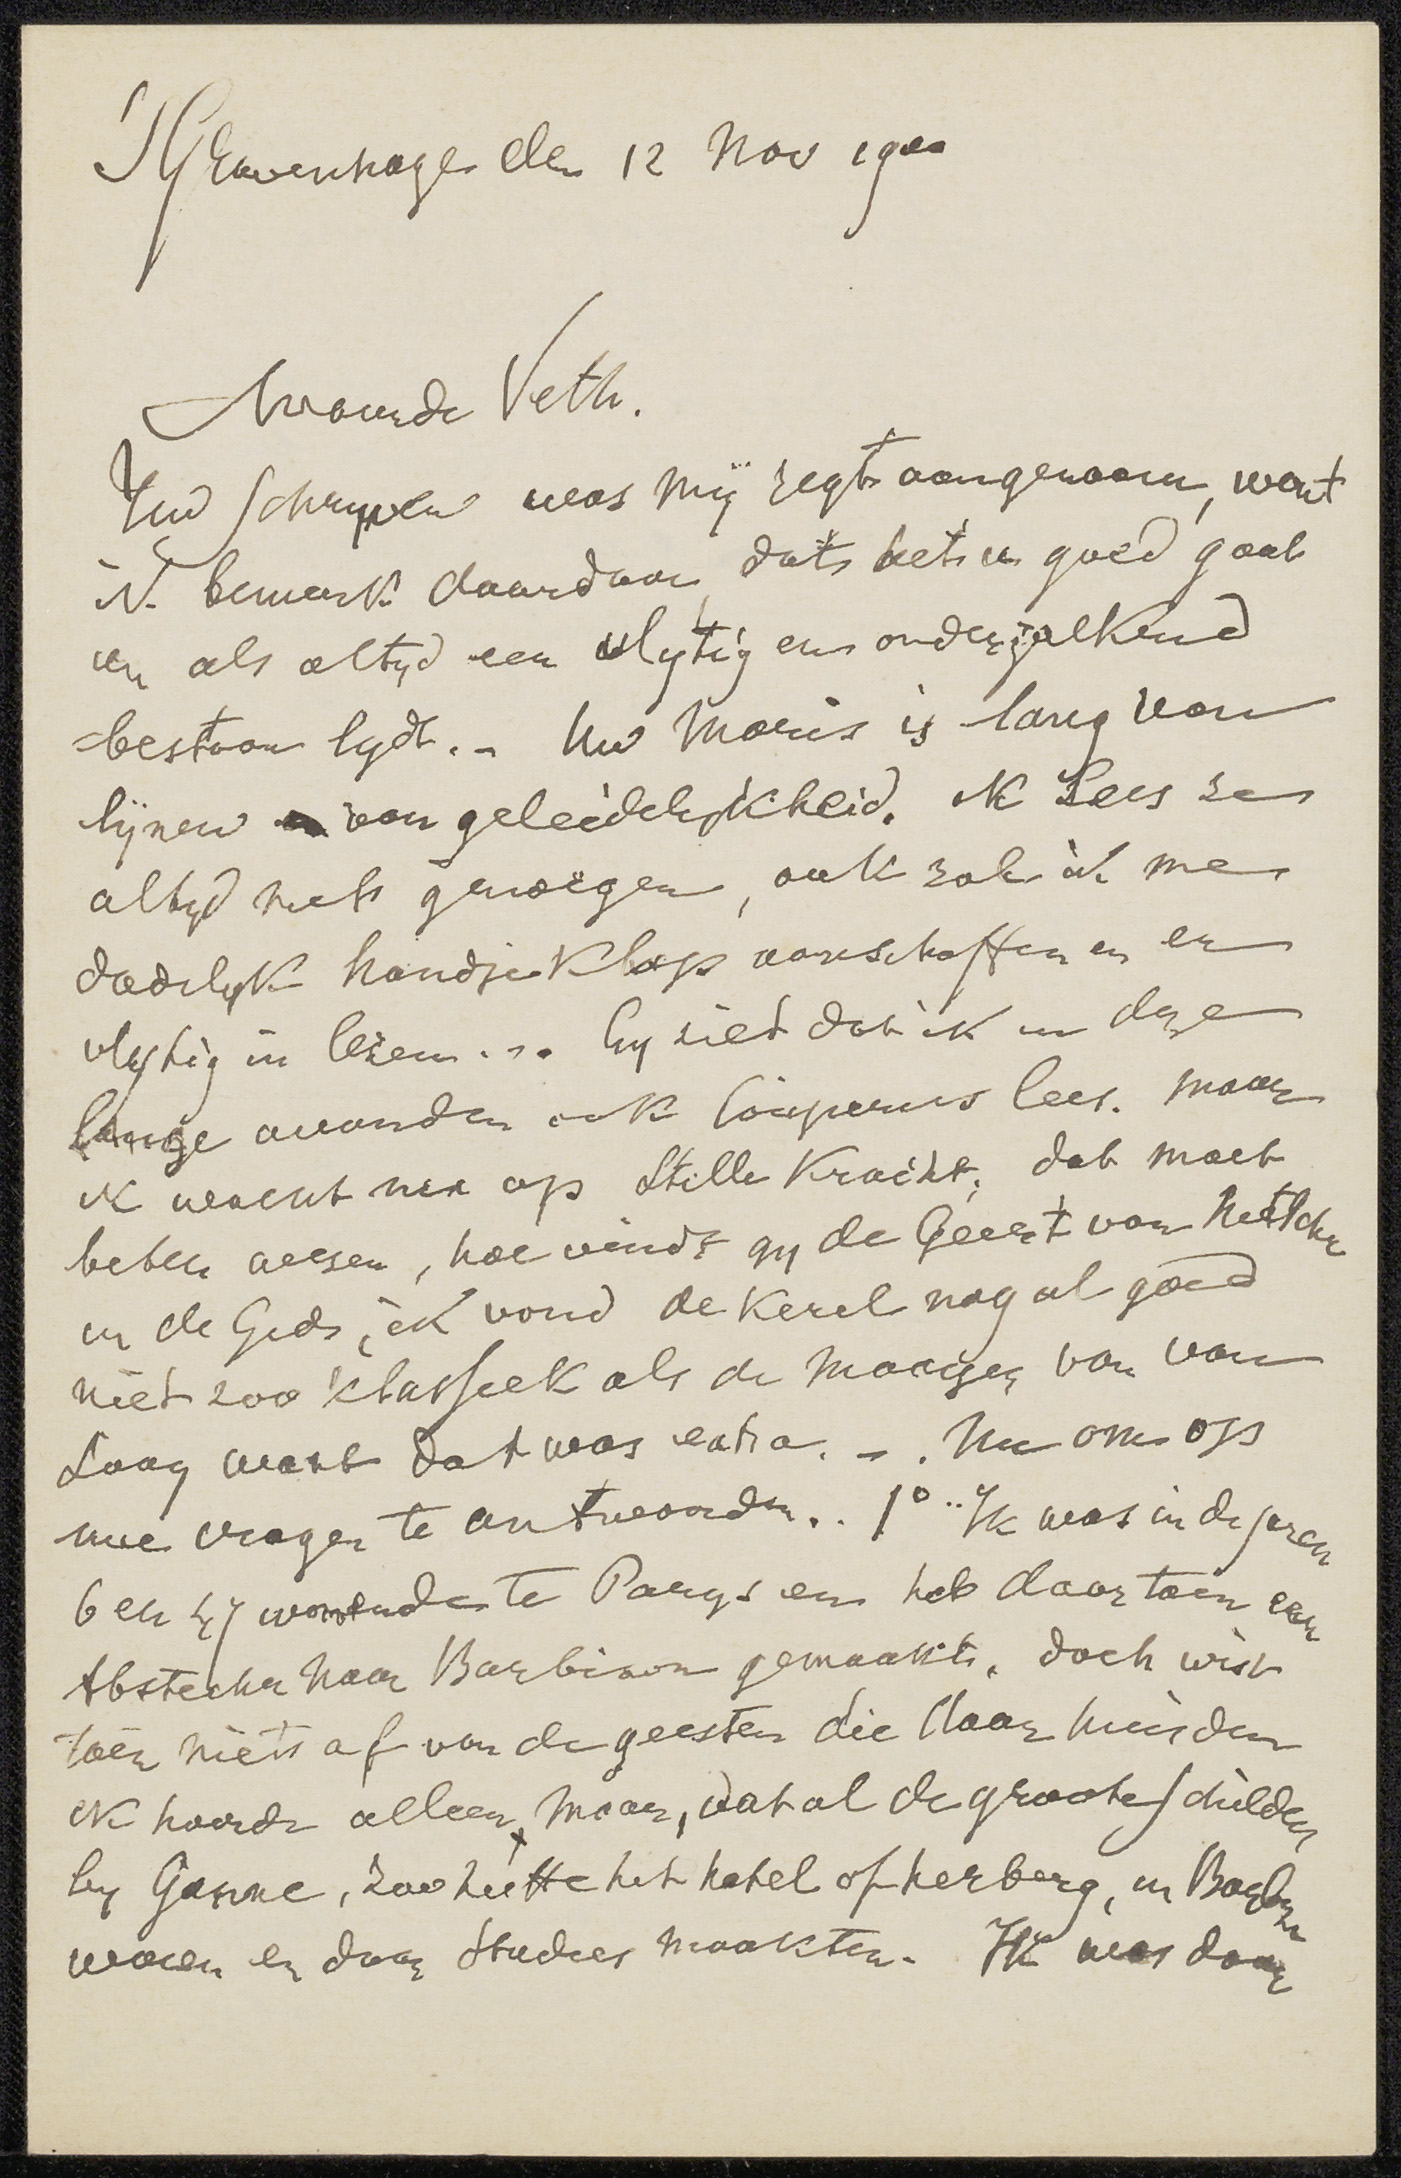 'SGravenhage den 12 Nov 1900
Waarde Veth.
Uw schryven was mij regt aangenaam, want
ik bemerk daardoor dat het u goed gaat
en als altyd een vlytig en onderzoekend
bestaan lydt. - Uw Maris is lang van
lijnen van geleidelykheid. ik lees ze
altyd met genoegen, ook zal ik me
dadelyk handjeklap aanschaffen en er
vlytig in lezen. . . Gy ziet dat ik in deze
lange avonden ook Couperus lees. maar
ik wacht nu op Stille Kracht, dat moet
beter wezen, hoe vindt gy de Geert van Netscher
in de Gids, ik vond de kerel nog al goed
niet zoo klassiek als de van van
Looy want dat was extra. - . Nu om op
uwe vragen te antwoorden. . 1° Ik was in de jaren
6 en 57 woonende te Parys en heb daar toen een
Abstecher naar Barbison gemaakt, doch wist
toen niets af van de geesten die daar huisden
ik hoorde alleen maar, dat al de groote schilders
by Ganne, zoo heette het hotel of herberg, in Barbizon
waren en daar studies maakten. Ik was daar